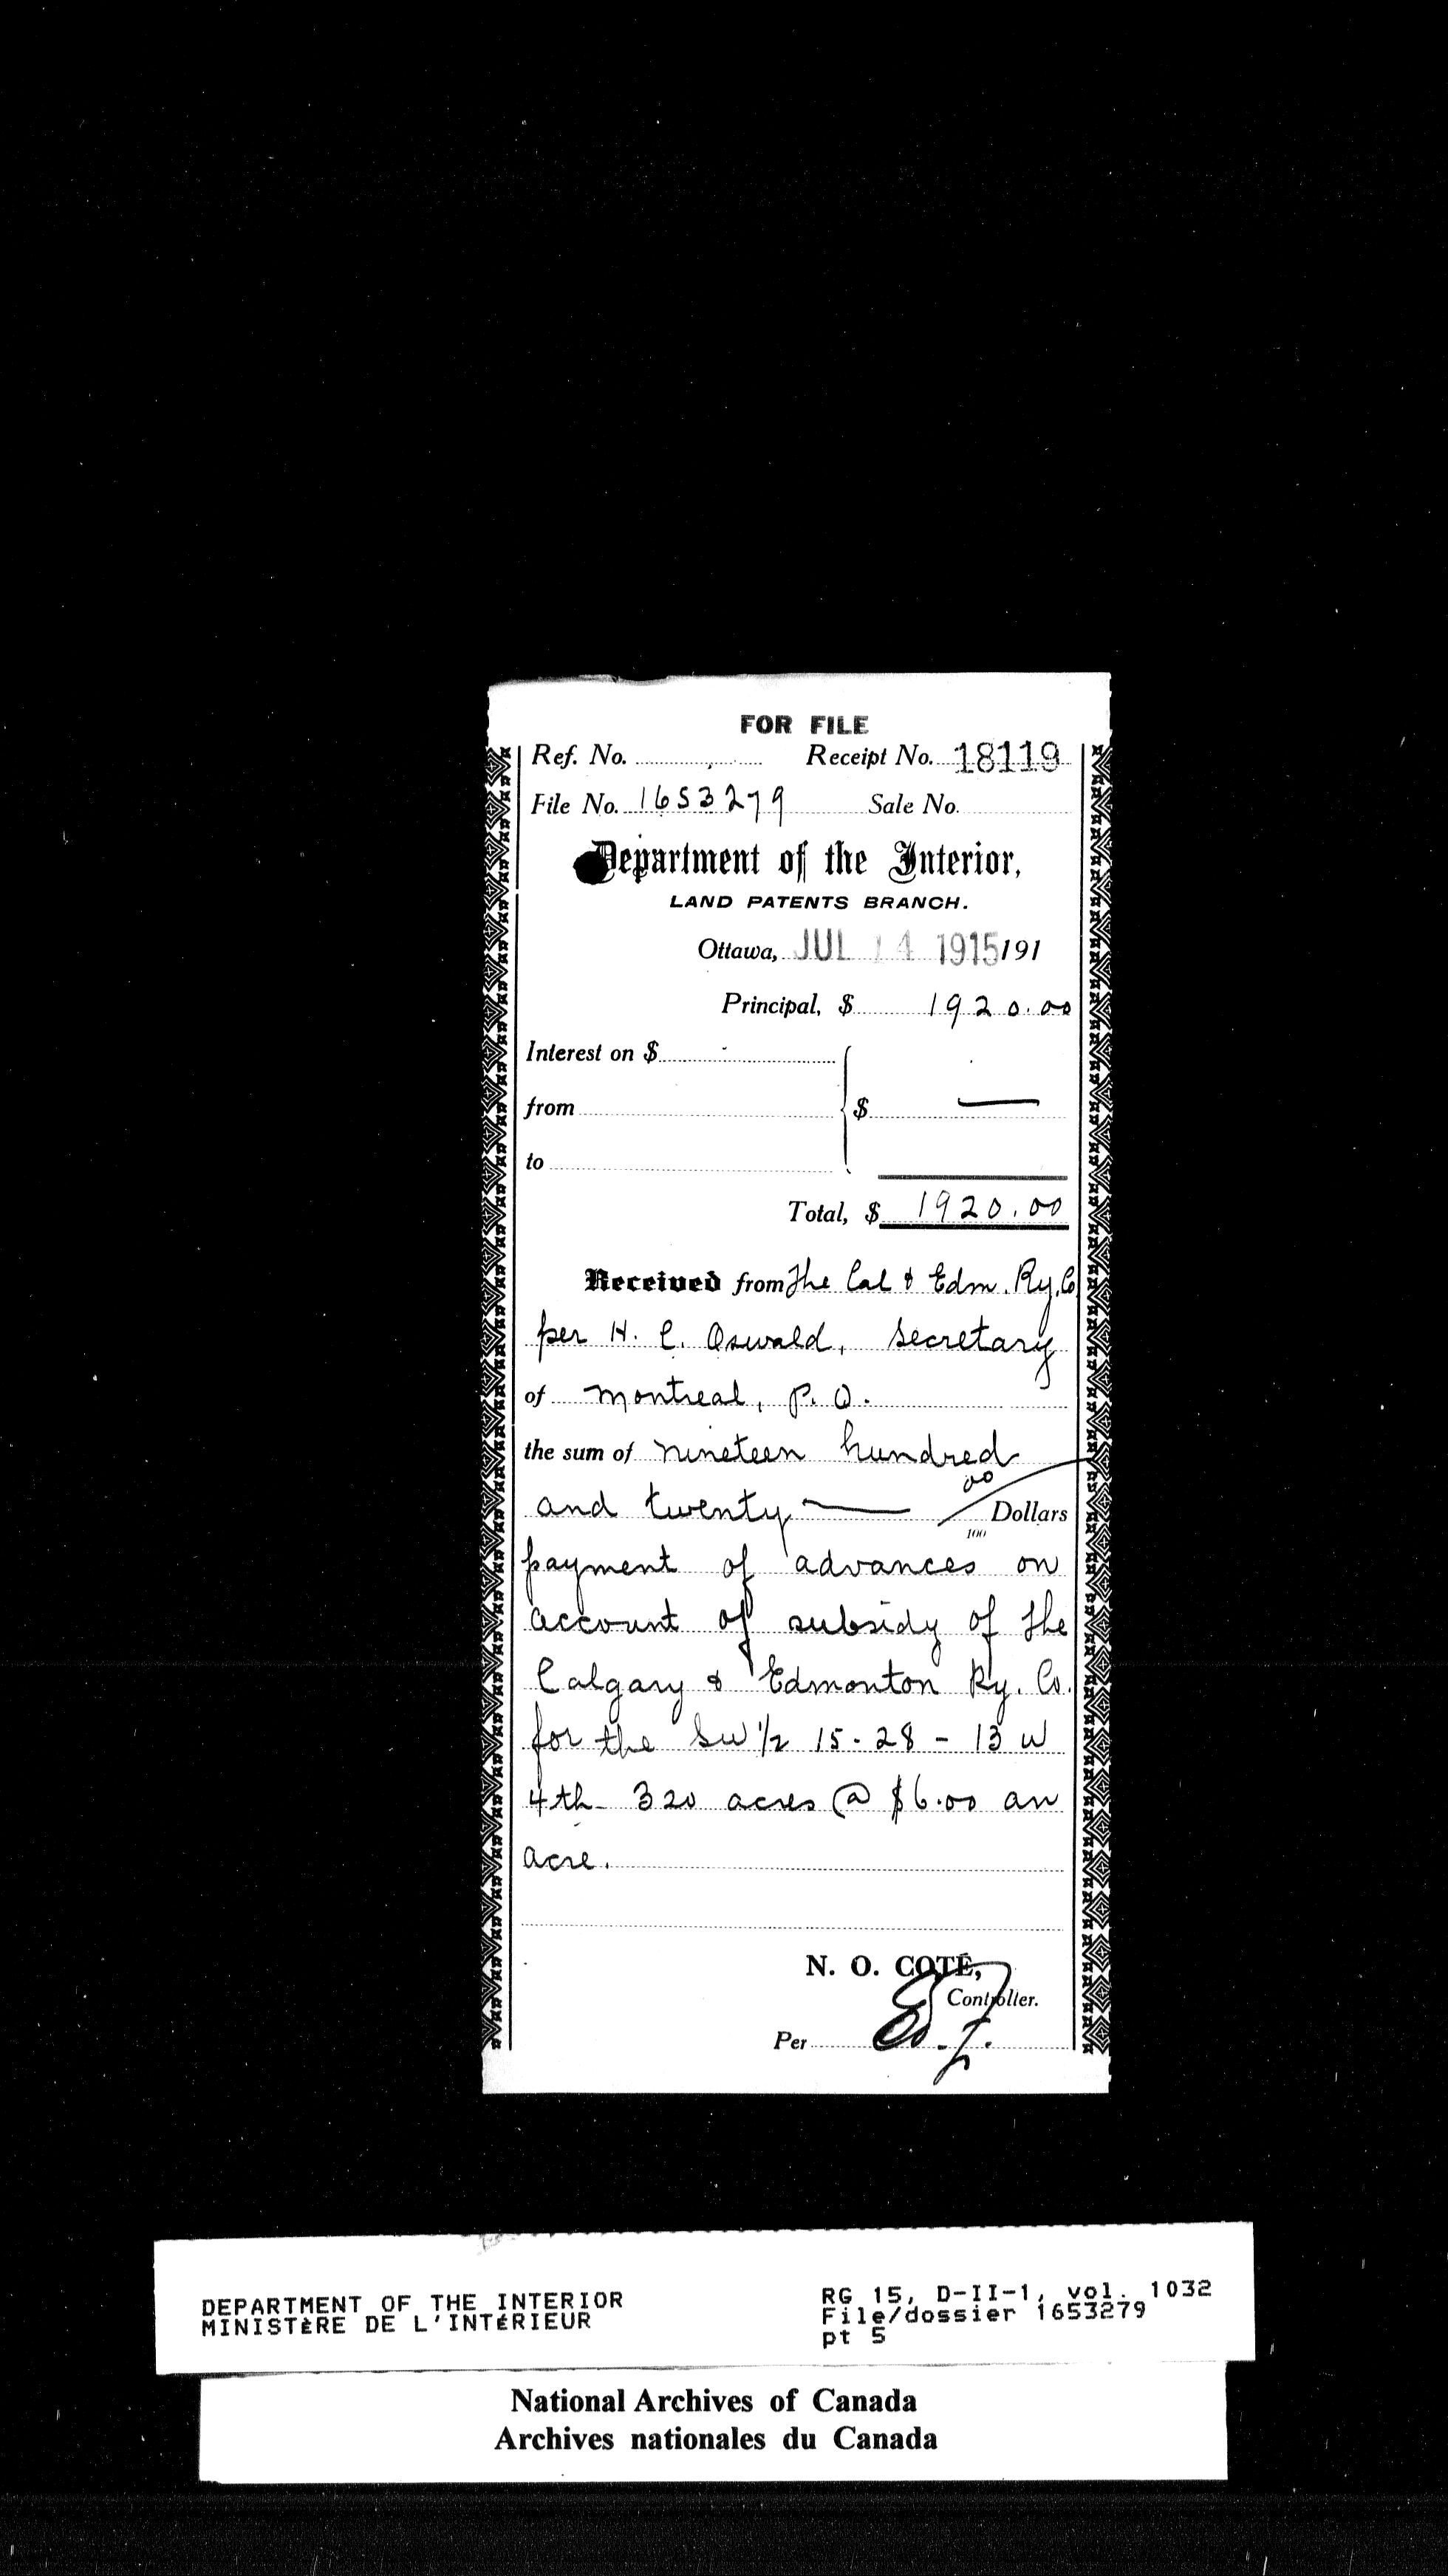 FOR FILE
Ref. No. Receipt No. 18119
File No. 1653279 Sale No.
Department of the Interior,
LAND PATENTS BRANCH.
Ottawa, JUL 14 1915 191
Principal, $ 1920.00
Interest on $
from $ —
to
Total, $ 1920.00
Received from The Cal & Edm. Ry. Co.
per H. C. Oswald, Secretary
of Montreal, P. Q.
the sum of nineteen hundred
and twenty — 00/100 Dollars
payment of advances on
account of subsidy of the
Calgary & Edmonton Ry. Co.
for the SW 1/2 15-28-13 W
4th 320 acres @ $6.00 an
acre.
N. O. COTÉ,
Controller.
Per
DEPARTMENT OF THE INTERIOR RG 15, D-II-1, vol. 1032
MINISTÈRE DE L'INTÉRIEUR File/dossier 1653279
pt 5
National Archives of Canada
Archives nationales du Canada